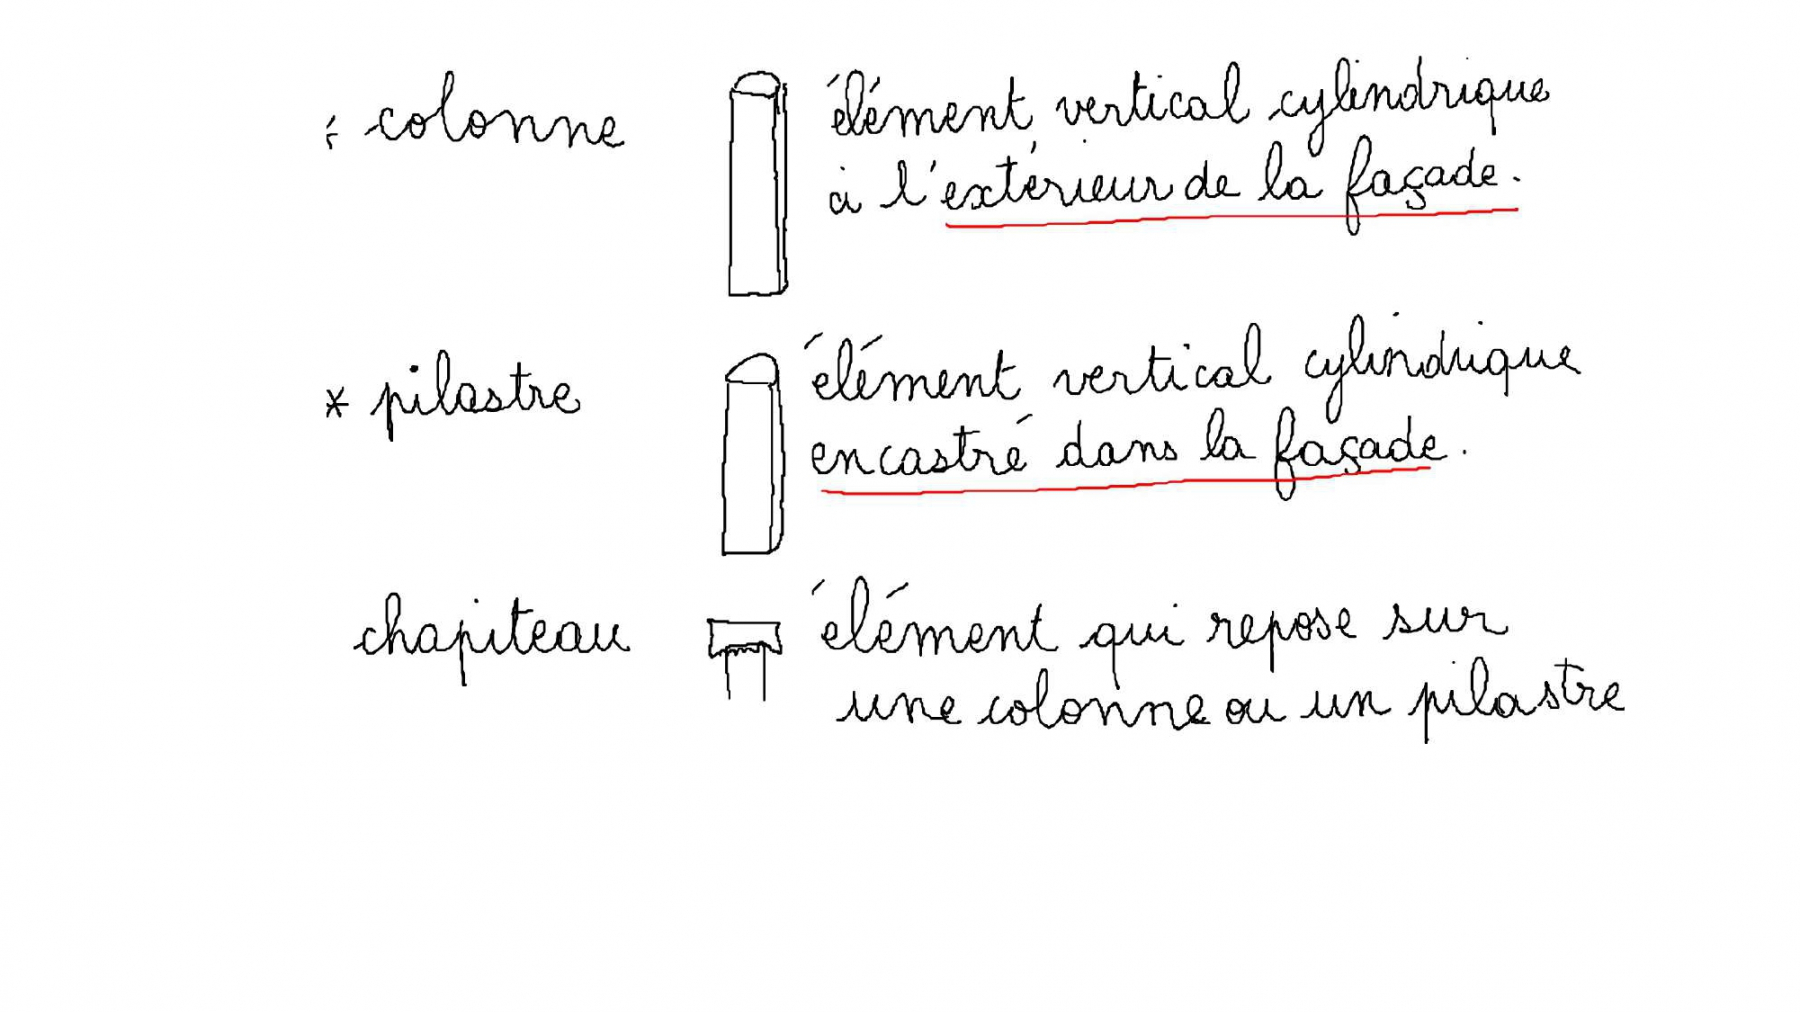 * colonne élément vertical cylindrique
à l'extérieur de la façade.
* pilastre élément vertical cylindrique
encastré dans la façade.
chapiteau élément qui repose sur
une colonne ou un pilastre